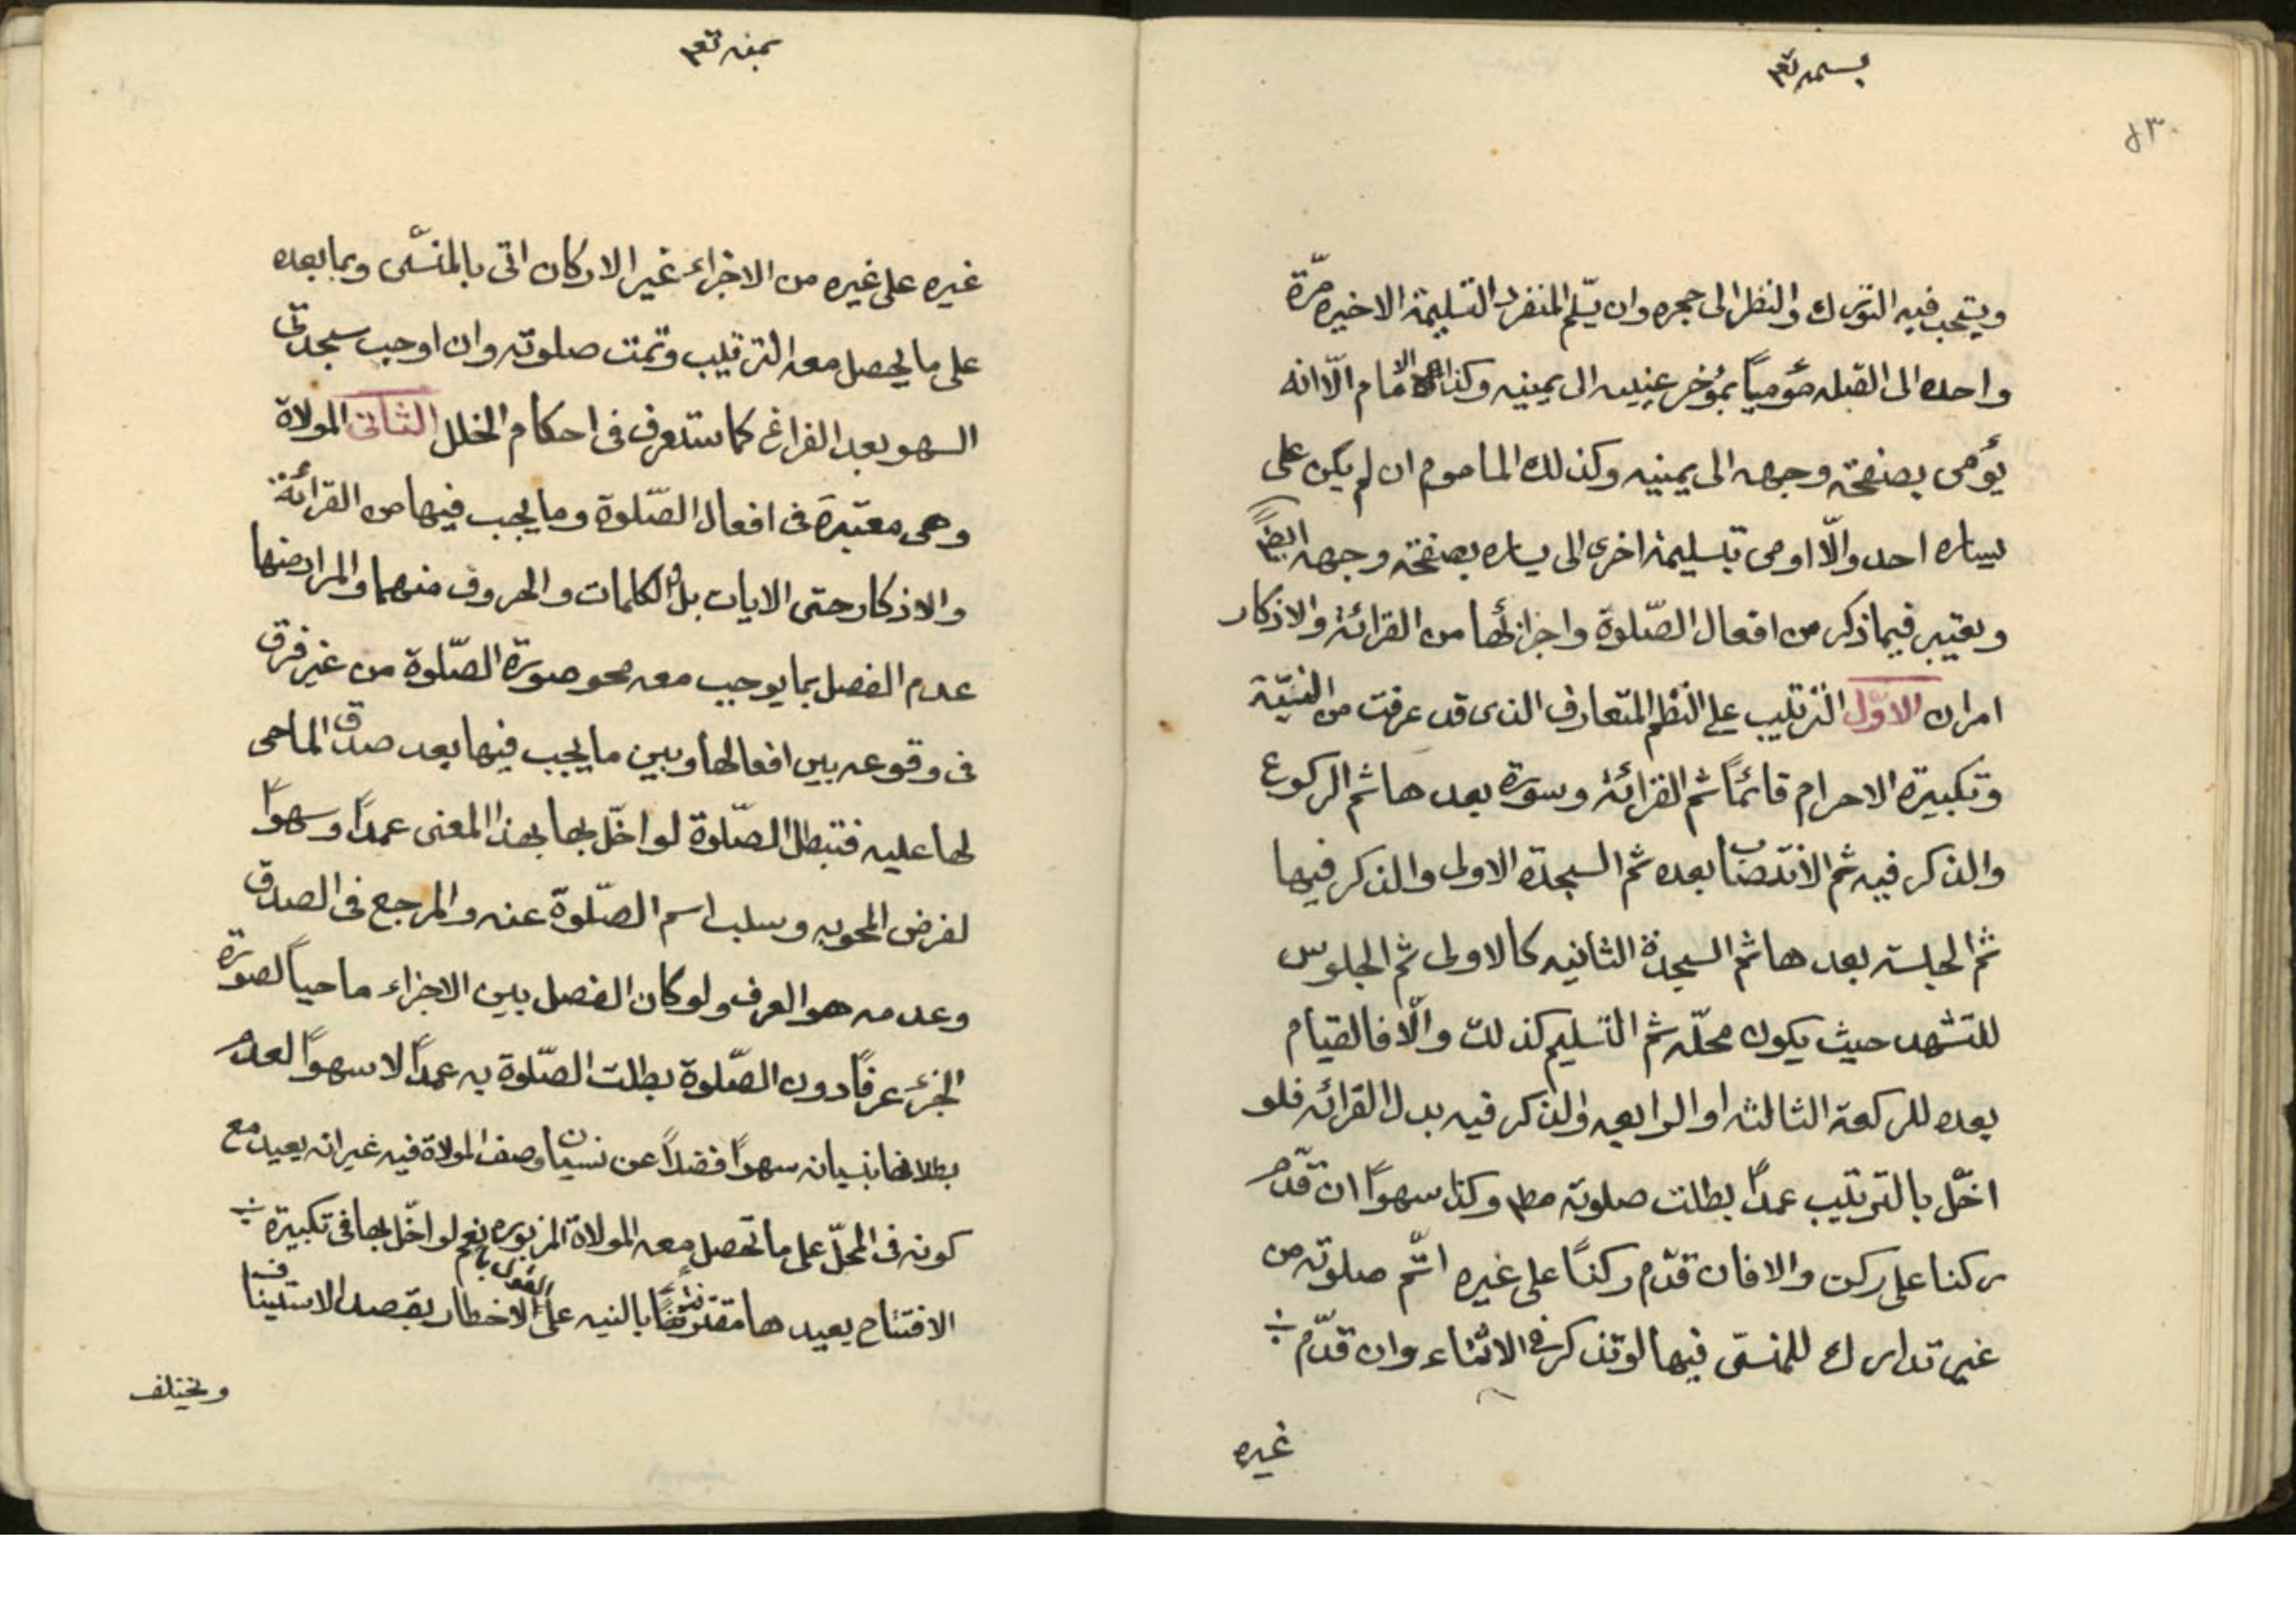 بسمه تع
٤٣٠
ويستحب فيه التورك والنظر الى حجره وان يسّلم المنفرد التسليمة الاخيره مرّة
واحده الى القبله مؤمياً بمؤخر عينيه الى يمينه وكذا الامام الّا انه
يؤمى بصفحة وجهه الى يمينه وكذلك الماموم ان لم يكن على
يساره احد والّا اومى بتسليمة اخرى الى يساره بصفحة وجهه ايضاً
ويعتبر فيما ذكر من افعال الصّلوة واجزائها من القرائة والاذكار
امران الاوّل الترتيب على النظم المتعارف الذى قد عرفت من النيّة
وتكبيرة الاحرام قائماً ثم القرائة وسورة بعدها ثم الركوع
والذكر فيه ثم الانتصاب بعده ثم السجدة الاولى والذكر فيها
ثم الجلسة بعدها ثم السجدة الثانيه كالاولى ثم الجلوس
للتشهد حيث يكون محلّه ثم التسليم كذلك والّا فالقيام
بعده للركعة الثالثه او الرابعه والذكر فيه بدل القرائه فلو
اخّل بالترتيب عمداً بطلت صلوته مط وكذا سهواً ان قدّم
ركنا على ركن والا فان قدّم ركناً على غيره اتّم صلوته من
غير تدارك للمنسّى فيها لو تذكر فى الاثناء وان قدّم
غيره
بمنه تع
غيره على غيره من الاجزاء غير الاركان اتى بالمنسّى وبما بعده
على ما يحصل معه الترتيب وتمت صلوته وان اوجب سجدتى
السهو بعد الفراغ كما ستعرف فى احكام الخلل الثانى المولاة
وهى معتبرة فى افعال الصّلوة وما يجب فيها من القرائة
والاذكار حتى الايات بل الكلمات والحروف منهما والمراد منها
عدم الفصل بما يوجب معه محو صورة الصّلوة من غير فرق
فى وقوعه بين افعالها وبين ما يجب فيها بعد صدق الماحى
لها عليه فتبطل الصّلوة لو اخّل بها بهذا المعنى عمداً وسهواً
لفرض المحو به وسلب اسم الصّلوة عنه والمرجع فى الصدق
وعدمه هو العرف ولو كان الفصل بين الاجزاء ماحياً لصورة
الجزء عرفاً دون الصّلوة بطلت الصّلوة به عمداً لا سهواً لعدم
بطلانها بنسيانه سهواً فضلاً عن نسيان وصف المولاة فيه غير انه يعيد مع
كونه فى المحلّ على ما تحصل معه المولاة المزبوره نعم لو اخّل بها فى تكبيرة
الافتتاح يعيدها مقترنتاً بالنيه على القول بالاخطار بقصد الاستيناف
ويختلف